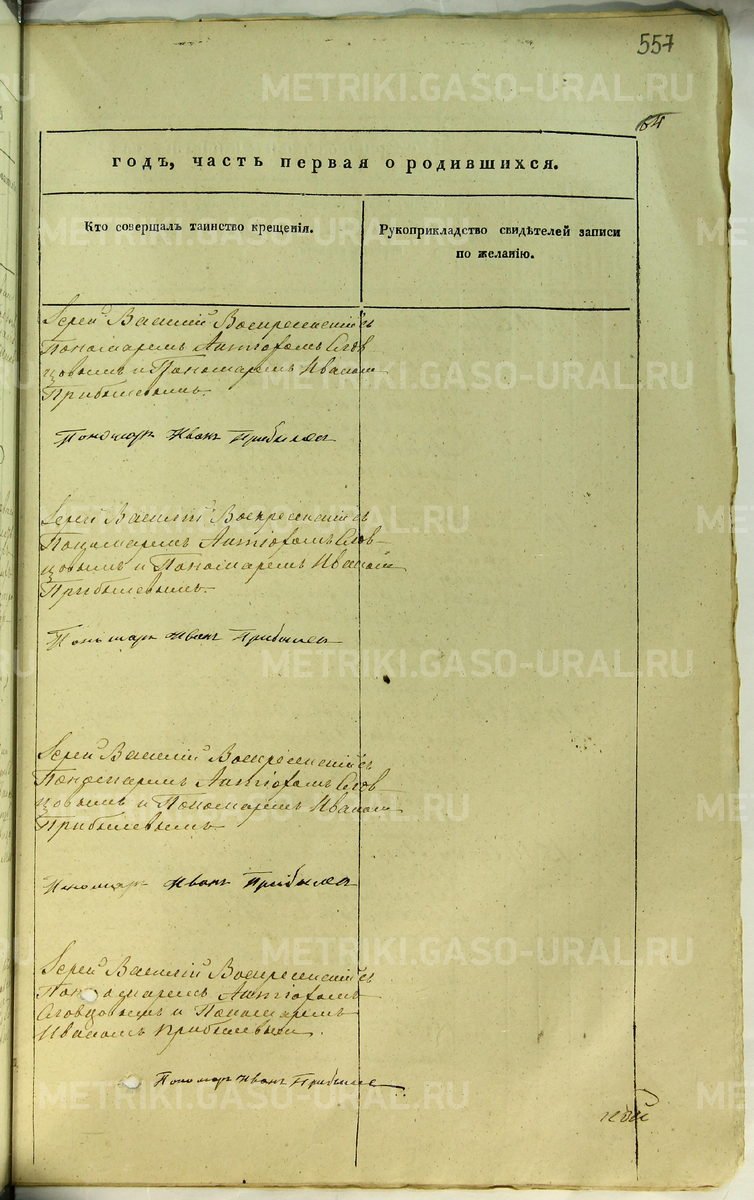 557
64
METRIKI.GASO-URAL.RU
годъ, часть первая о родившихся.
Кто совершалъ таинство крещенія.
Рукоприкладство свидѣтелей записи
по желанію.
Іерей Василій Воскресенскій съ
Пономаремъ Антіохомъ Слов
цовымъ и Пономаремъ Иваном
Прибылевымъ.
Пономарь Иванъ Прибылев
Іерей Василій Воскресенскій съ
Пономаремъ Антіохомъ Слов-
цовымъ и Пономаремъ Иваном
Прибылевымъ.
Пономарь Иванъ Прибылев
Іерей Василій Воскресенскій съ
Пономаремъ Антіохомъ Слов
цовымъ и Пономаремъ Иваном
Прибылевымъ
Пономарь Иванъ Прибылев
Іерей Василій Воскресенскій съ
Пономаремъ Антіохомъ
Словцовымъ и Пономаремъ
Иваномъ Прибылевым.
Пономарь Иванъ Прибыле